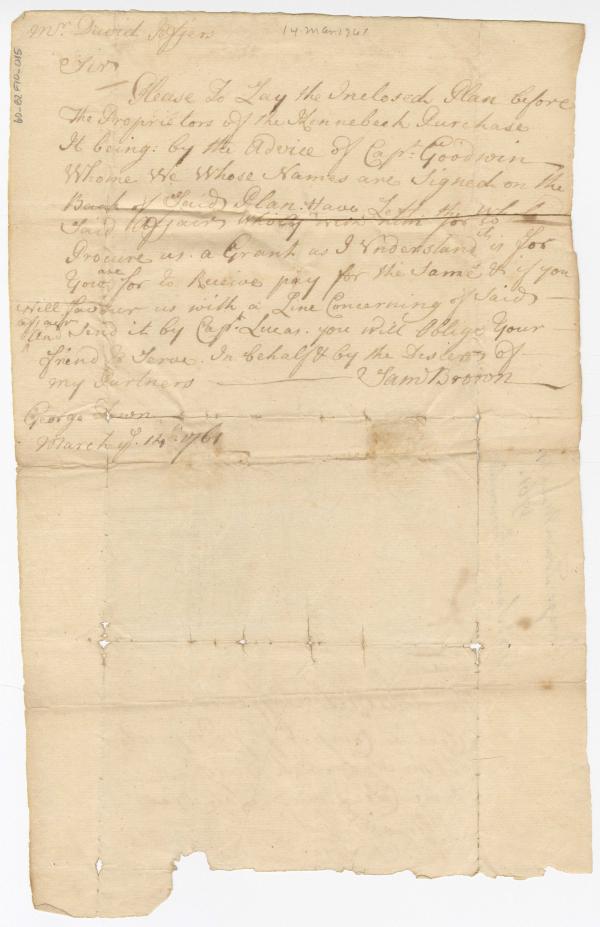 Mr. David Jeffers
14 Mar 1761
Sir
Please To Lay the Inclosed Plan before
The Proprietors of the Kennebeck Purchase
It being: by the Advice of Capt. Goodwin
Whome We Whose Names are Signed on the
Back of Said Plan. Have Left the Whole
Said Affair Wholy with him for to
Procure us. a Grant as I Understand it is for
You are for to Receive pay for the Same & if you
Will favour us with a Line Concerning of Said
affair
And Send it by Capt. Lucas. you will Oblige Your
friend to Serve. In behalf & by the Desier of
my Partners Saml Brown
George Town
March ye. 14th 1761